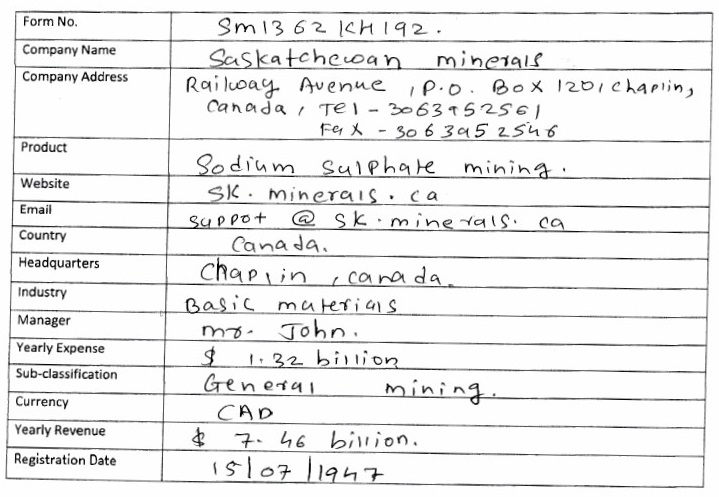 Form No. Sm1362KH192.
Company Name Saskatchewan minerals
Company Address Railway Avenue, P.O. Box 1201 chaplin,
Canada, Tel - 3063952561
Fax - 3063952546
Product Sodium sulphate mining.
Website SK.minerals.ca
Email suppot @ SK.minerals.ca
Country Canada.
Headquarters Chaplin, canada.
Industry Basic materials
Manager mr. John.
Yearly Expense $ 1.32 billion
Sub-classification General mining.
Currency CAD
Yearly Revenue $ 7.46 billion.
Registration Date 15/07/1947